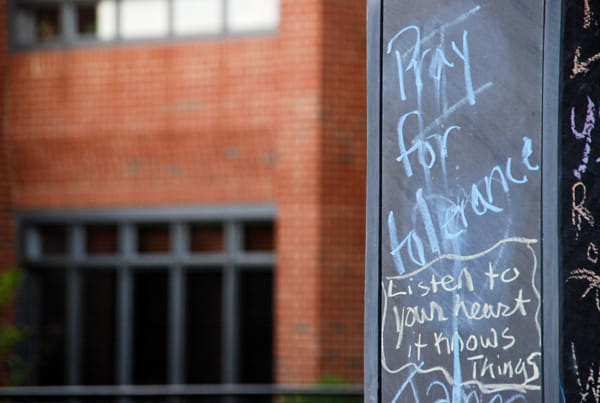 Pray
for
tolerance
Listen to
your heart
it knows
Things